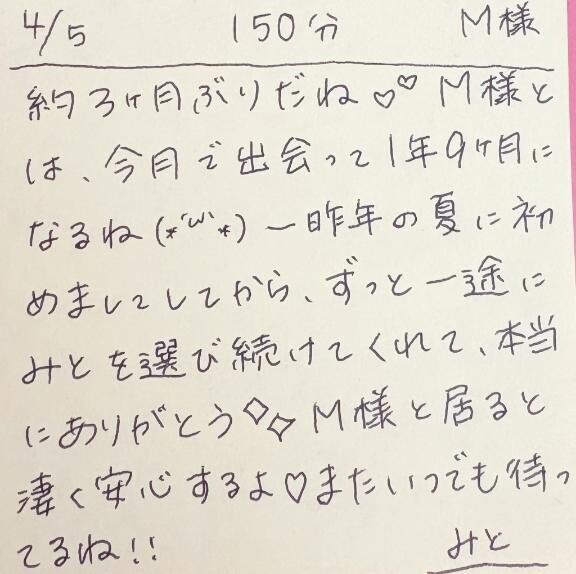 4/5 150分 M様
約3ヶ月ぶりだね♡♡ M様と
は、今月で出会って1年9ヶ月に
なるね(*´ω`*) 一昨年の夏に初
めましてしてから、ずっと一途に
みとを選び続けてくれて、本当
にありがとう✧✧ M様と居ると
凄く安心するよ♡またいつでも待っ
てるね!! みと